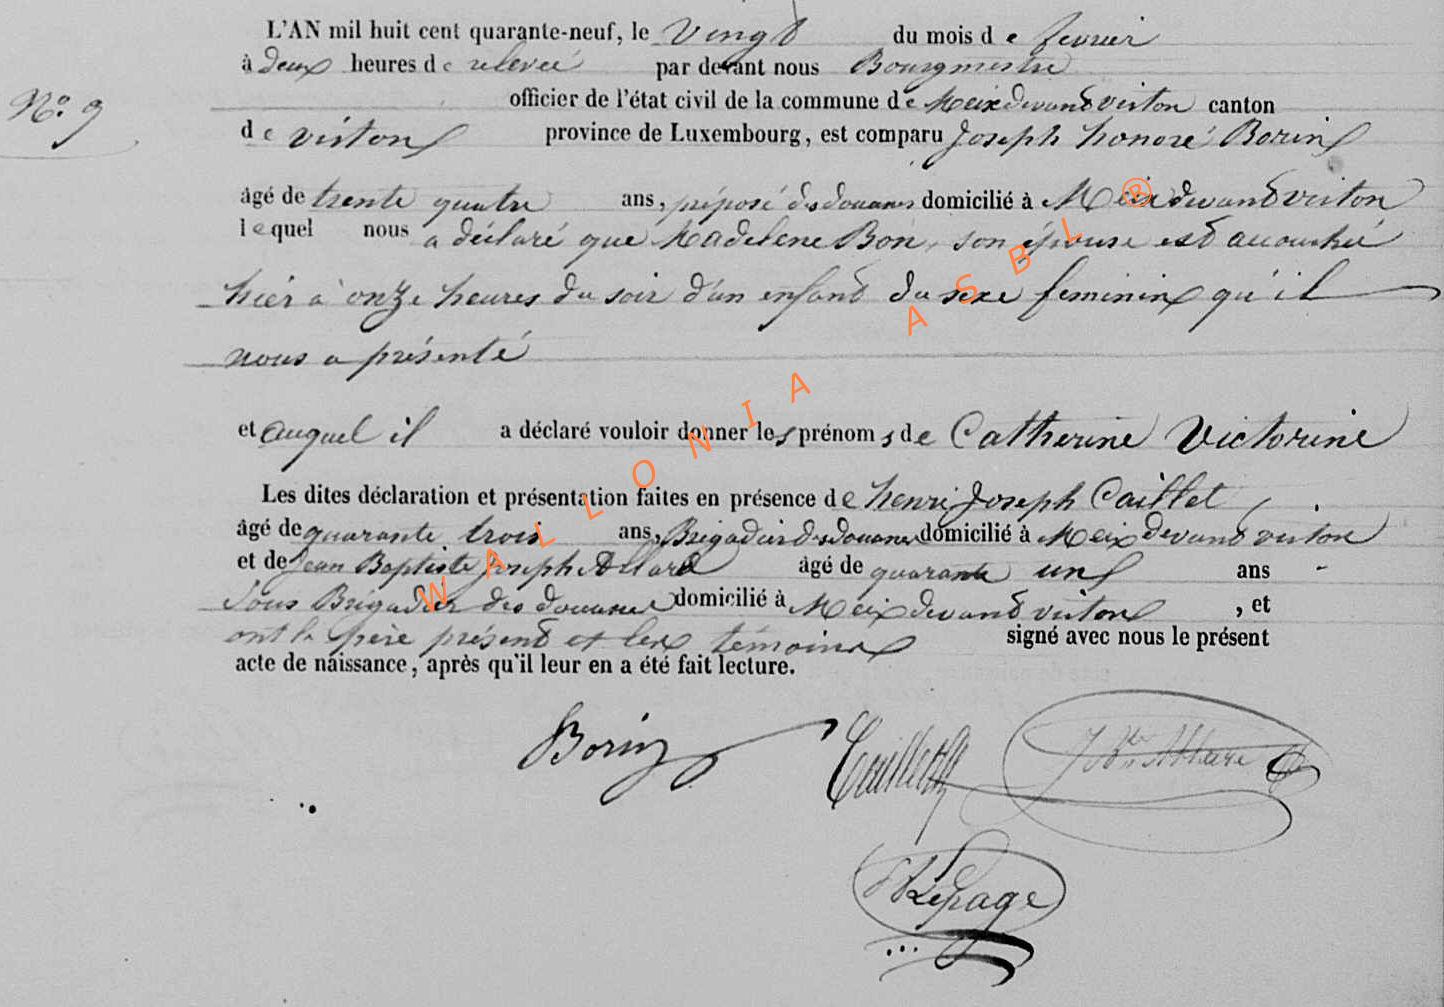 L'AN mil huit cent quarante-neuf, le vingt du mois de fevrier
à deux heures de relevée par devant nous Bourgmestre
officier de l'état civil de la commune de Meix devant virton canton
N° 9
de virton province de Luxembourg, est comparu Joseph honoré Borin
âgé de trente quatre ans, préposé des douanes domicilié à Meix devant virton
lequel nous a déclaré que Madelene Bon, son épouse est accouchée
hier à onze heures du soir d'un enfant du sexe feminin qu'il
nous a présenté
et auquel il a déclaré vouloir donner les prénoms de Catherine Victorine
Les dites déclaration et présentation faites en présence de henri Joseph Caillet
âgé de quarante trois ans, Brigadier des douanes domicilié à Meix devant virton
et de Jean Baptiste Joseph Allard âgé de quarante un ans
Sous Brigadier des douanes domicilié à Meix devant virton, et
ont le père présent et les témoins signé avec nous le présent
acte de naissance, après qu'il leur en a été fait lecture.
Borin Caillet
Lepage
WALLONIA ASBL ®